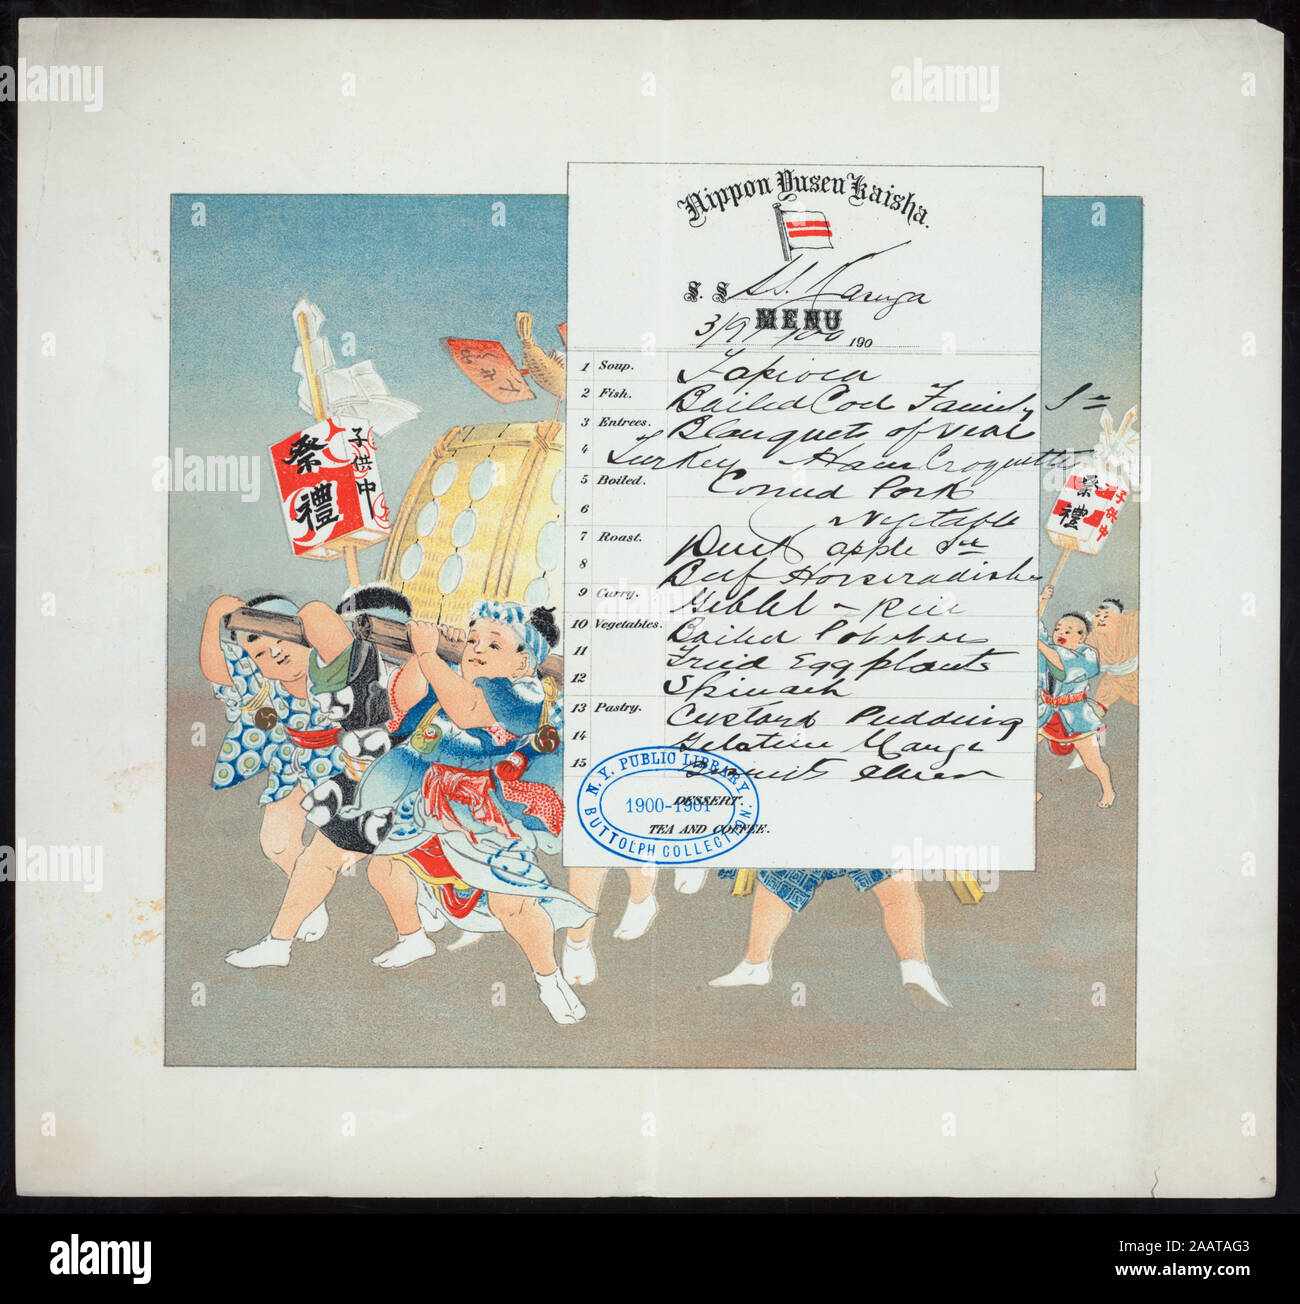 Nippon Yusen Kaisha.
S. S
MENU
190
1 Soup. Tapioca
2 Fish. Boiled Cod Family Sce
3 Entrees. Blanquets of veal
4 Turkey Ham Croquettes
5 Boiled. Corned Pork
6 Vegetable
7 Roast. Duck apple Sce
8 Beef Horseradish
9 Curry. Giblet - Rice
10 Vegetables. Boiled Potatoes
11 Fried Eggplants
12 Spinach
13 Pastry. Custard Pudding
14 Gelatine
15
DESSERT.
TEA AND COFFEE.
N.Y. PUBLIC LIBRARY.
1900-1901
BUTTOLPH COLLECTION.
祭禮
子供中
祭禮
子供中
alamy
alamy
Image ID: 2AATAG3
www.alamy.com